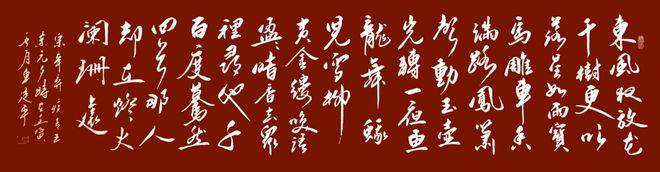 東風夜放花
千樹更吹
落星如雨寶
馬雕車香
滿路鳳簫
聲動玉壺
光轉一夜魚
龍舞蛾
兒雪柳
黃金縷笑語
盈盈暗香去眾
裡尋他千
百度驀然
回首那人
却在燈火
闌珊處
宋辛棄疾青玉
案元夕時在